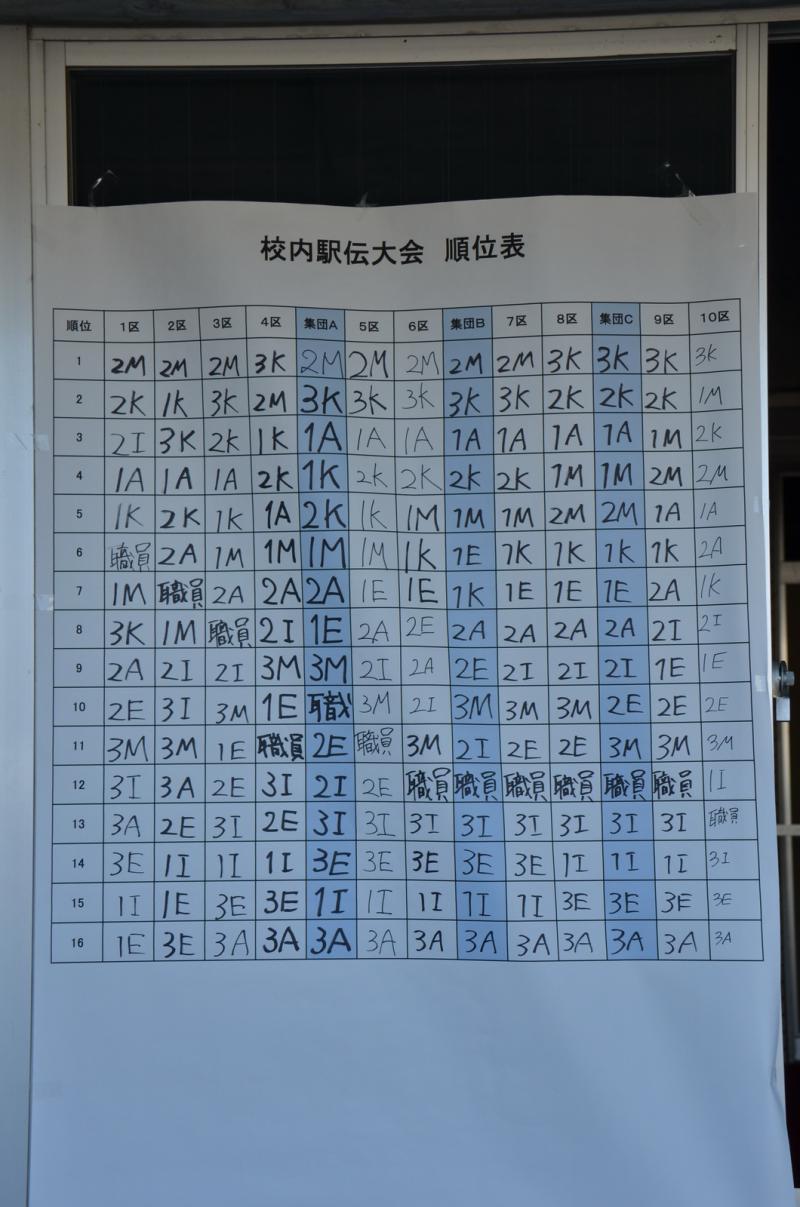 校内駅伝大会 順位表
順位 1区 2区 3区 4区 集団A 5区 6区 集団B 7区 8区 集団C 9区 10区
1 2M 2M 2M 3K 2M 2M 2M 2M 2M 3K 3K 3K 3K
2 2K 1K 3K 2M 3K 3K 3K 3K 3K 2K 2K 2K 1M
3 2I 3K 2K 1K 1A 1A 1A 1A 1A 1A 1A 1M 2K
4 1A 1A 1A 2K 1K 2K 2K 2K 2K 1M 1M 2M 2M
5 1K 2K 1K 1A 2K 1K 1M 1M 1M 2M 2M 1A 1A
6 職員 2A 1M 1M 1M 1M 1K 1E 1K 1K 1K 1K 2A
7 1M 職員 2A 2A 2A 1E 1E 1K 1E 1E 1E 2A 1K
8 3K 1M 職員 2I 1E 2A 2E 2A 2A 2A 2A 2I 2I
9 2A 2I 2I 3M 3M 2I 2A 2E 2I 2I 2I 1E 1E
10 2E 3I 3M 1E 職 3M 2I 3M 3M 3M 2E 2E 2E
11 3M 3M 1E 職員 2E 職員 3M 2I 2E 2E 3M 3M 3M
12 3I 3A 2E 3I 2I 2E 職員 職員 職員 職員 職員 職員 1I
13 3A 2E 3I 2E 3I 3I 3I 3I 3I 3I 3I 3I 職員
14 3E 1I 1I 1I 3E 3E 3E 3E 3E 1I 1I 1I 3I
15 1I 1E 3E 3E 1I 1I 1I 1I 1I 3E 3E 3E 3E
16 1E 3E 3A 3A 3A 3A 3A 3A 3A 3A 3A 3A 3A